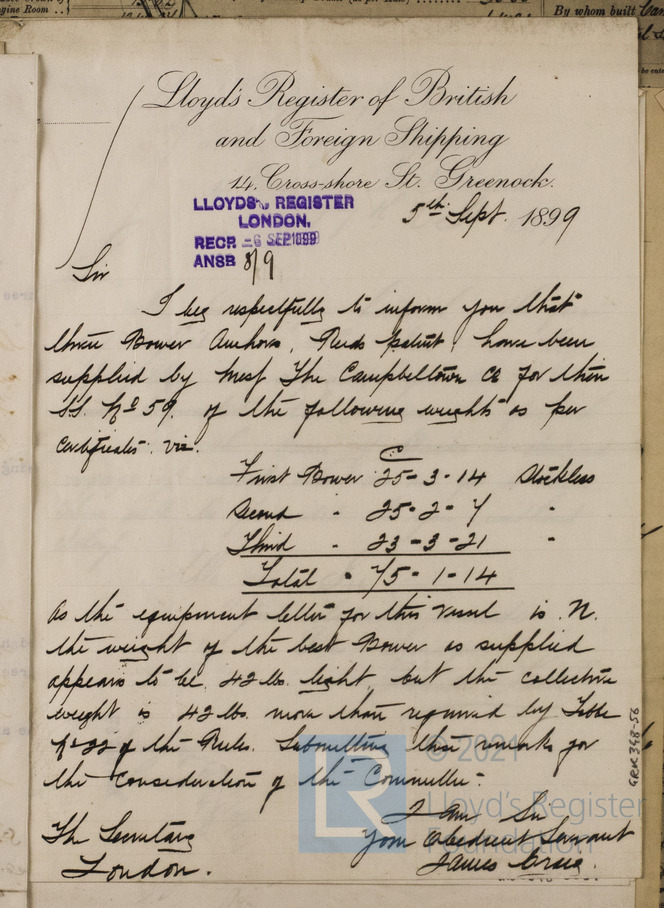 gine Room ..
By whom built
Lloyd's Register of British
and Foreign Shipping
14, Cross-shore St. Greenock.
LLOYDS REGISTER
LONDON,
RECR -6 SEP 1899
ANSB 8/9
5th Sept. 1899
Sir
I beg respectfully to inform you that
three Bower Anchors, Reds patent, have been
supplied by Mess The Campbeltown Co for their
S.S. No 59. of the following weights as per
Certificates. viz.
C
First Bower 25-3-14 Stockless
Second " 25-2-7 "
Third " 23-3-21 "
Total " 75-1-14
As the equipment letter for this vessel is N.
the weight of the best Bower as supplied
appears to be 42 lbs. light but the collective
weight is 42 lbs. more than required by Table
No 22 of the Rules. Submitting these remarks for
the consideration of the Committee.
I am Sir
Your Obedient Servant
James Craig.
The Secretary
London.
GRK 348-56
© 2021
Lloyd's Register
Foundation